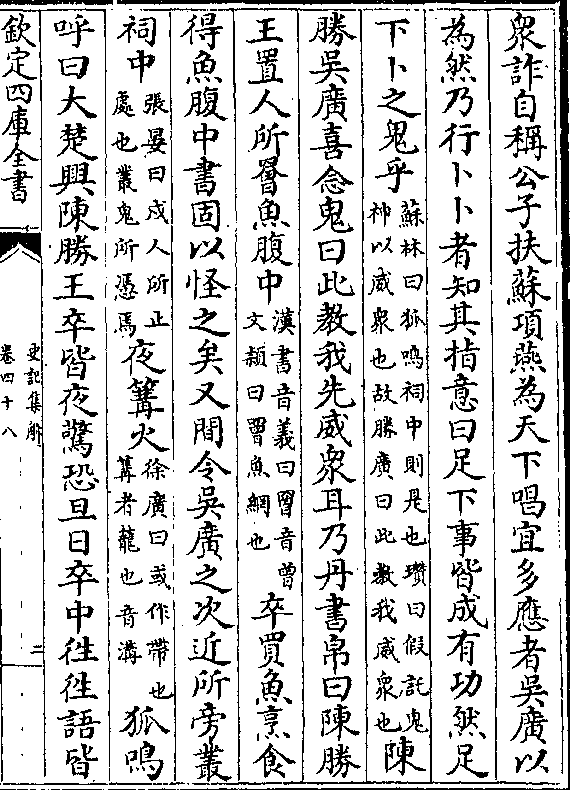 衆詐自稱公子扶蘇項燕為天下唱宜多應者吳廣以
為然乃行卜卜者知其指意曰足下事皆成有功然足
下卜之鬼乎蘇林曰狐鳴祠中則是也瓚曰假託鬼神以威衆也故勝廣曰此教我威衆也陳
勝吳廣喜念鬼曰此教我先威衆耳乃丹書帛曰陳勝
王置人所罾魚腹中漢書音義曰罾音曾文穎曰罾魚網也卒買魚烹食
得魚腹中書固以怪之矣又間令吳廣之次近所旁叢
祠中張晏曰戍人所止處也叢鬼所憑焉夜篝火徐廣曰或作帶也篝者籠也音溝狐鳴
呼曰大楚興陳勝王卒皆夜驚恐旦日卒中徃徃語皆
欽定四庫全書
史記集解
卷四十八
二